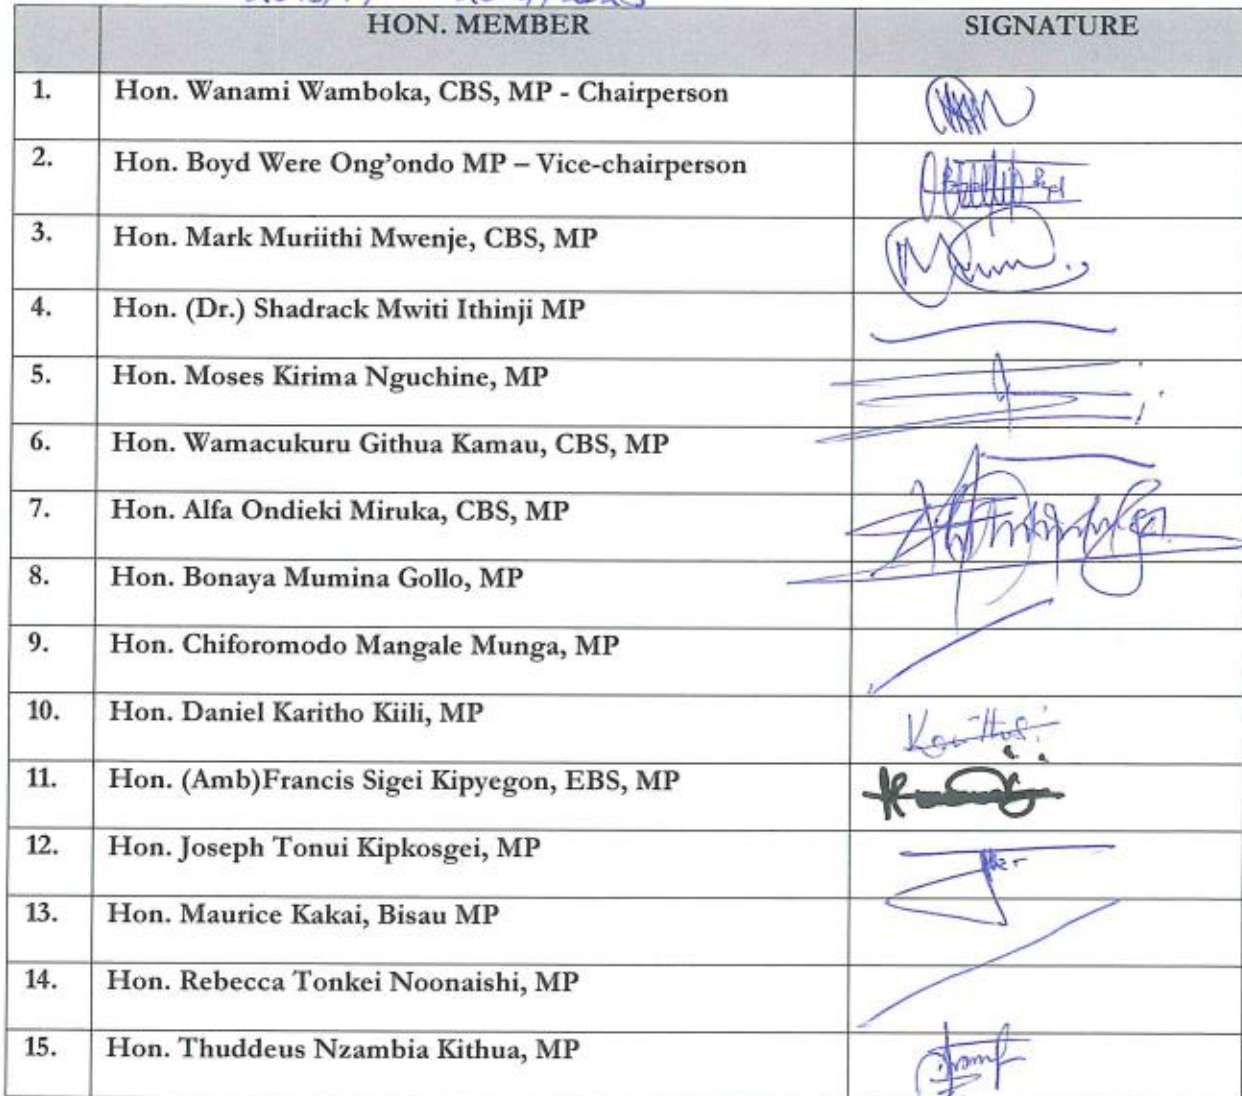 HON. MEMBER SIGNATURE
1. Hon. Wanami Wamboka, CBS, MP - Chairperson
2. Hon. Boyd Were Ong'ondo MP – Vice-chairperson
3. Hon. Mark Muriithi Mwenje, CBS, MP
4. Hon. (Dr.) Shadrack Mwiti Ithinji MP
5. Hon. Moses Kirima Nguchine, MP
6. Hon. Wamacukuru Githua Kamau, CBS, MP
7. Hon. Alfa Ondieki Miruka, CBS, MP
8. Hon. Bonaya Mumina Gollo, MP
9. Hon. Chiforomodo Mangale Munga, MP
10. Hon. Daniel Karitho Kiili, MP
11. Hon. (Amb)Francis Sigei Kipyegon, EBS, MP
12. Hon. Joseph Tonui Kipkosgei, MP
13. Hon. Maurice Kakai, Bisau MP
14. Hon. Rebecca Tonkei Noonaishi, MP
15. Hon. Thuddeus Nzambia Kithua, MP